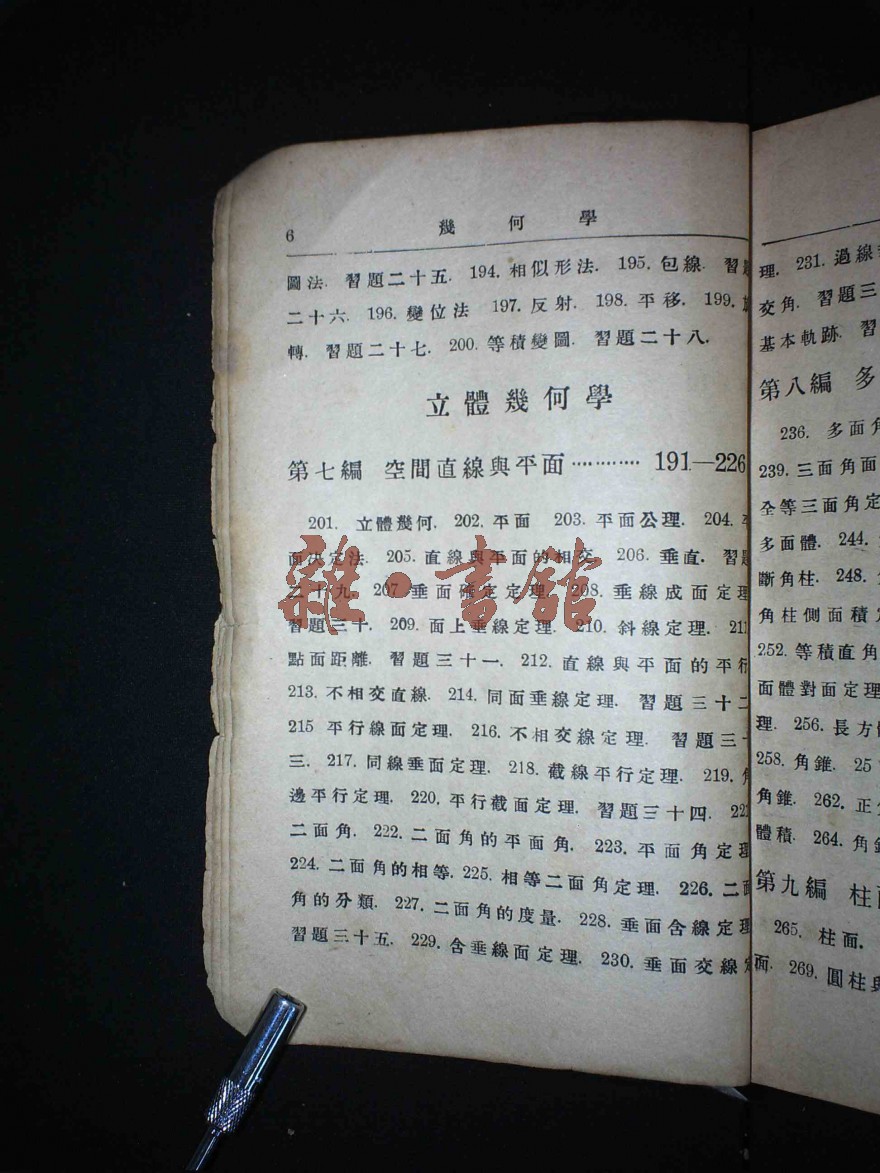 6 幾何學
圖法. 習題二十五. 194. 相似形法. 195. 包線. 習
二十六. 196. 變位法 197. 反射. 198. 平移. 199.
轉. 習題二十七. 200. 等積變圖. 習題二十八.
立體幾何學
第七編 空間直線與平面………… 191—226
201. 立體幾何. 202. 平面 203. 平面公理. 204.
面決定法. 205. 直線與平面的相交. 206. 垂直. 習
二十九. 207 垂面確定定理. 208. 垂線成面定理
習題三十. 209. 面上垂線定理. 210. 斜線定理. 211
點面距離. 習題三十一. 212. 直線與平面的平行
213. 不相交直線. 214. 同面垂線定理. 習題三十二
215 平行線面定理. 216. 不相交線定理. 習題三十
三. 217. 同線垂面定理. 218. 截線平行定理. 219. 角
邊平行定理. 220. 平行截面定理. 習題三十四. 221
二面角. 222. 二面角的平面角. 223. 平面角定理
224. 二面角的相等. 225. 相等二面角定理. 226. 二面
角的分類. 227. 二面角的度量. 228. 垂面含線定理
習題三十五. 229. 含垂線面定理. 230. 垂面交線定
雜·書館
理. 231. 過線
交角. 習題三
基本軌跡. 習
第八編 多
236. 多面角
239. 三面角面
全等三面角定
多面體. 244.
斷角柱. 248.
角柱側面積定
252. 等積直角
面體對面定理
理. 256. 長方
258. 角錐. 25
角錐. 262. 正
體積. 264. 角
第九編 柱面
265. 柱面.
面. 269. 圓柱與